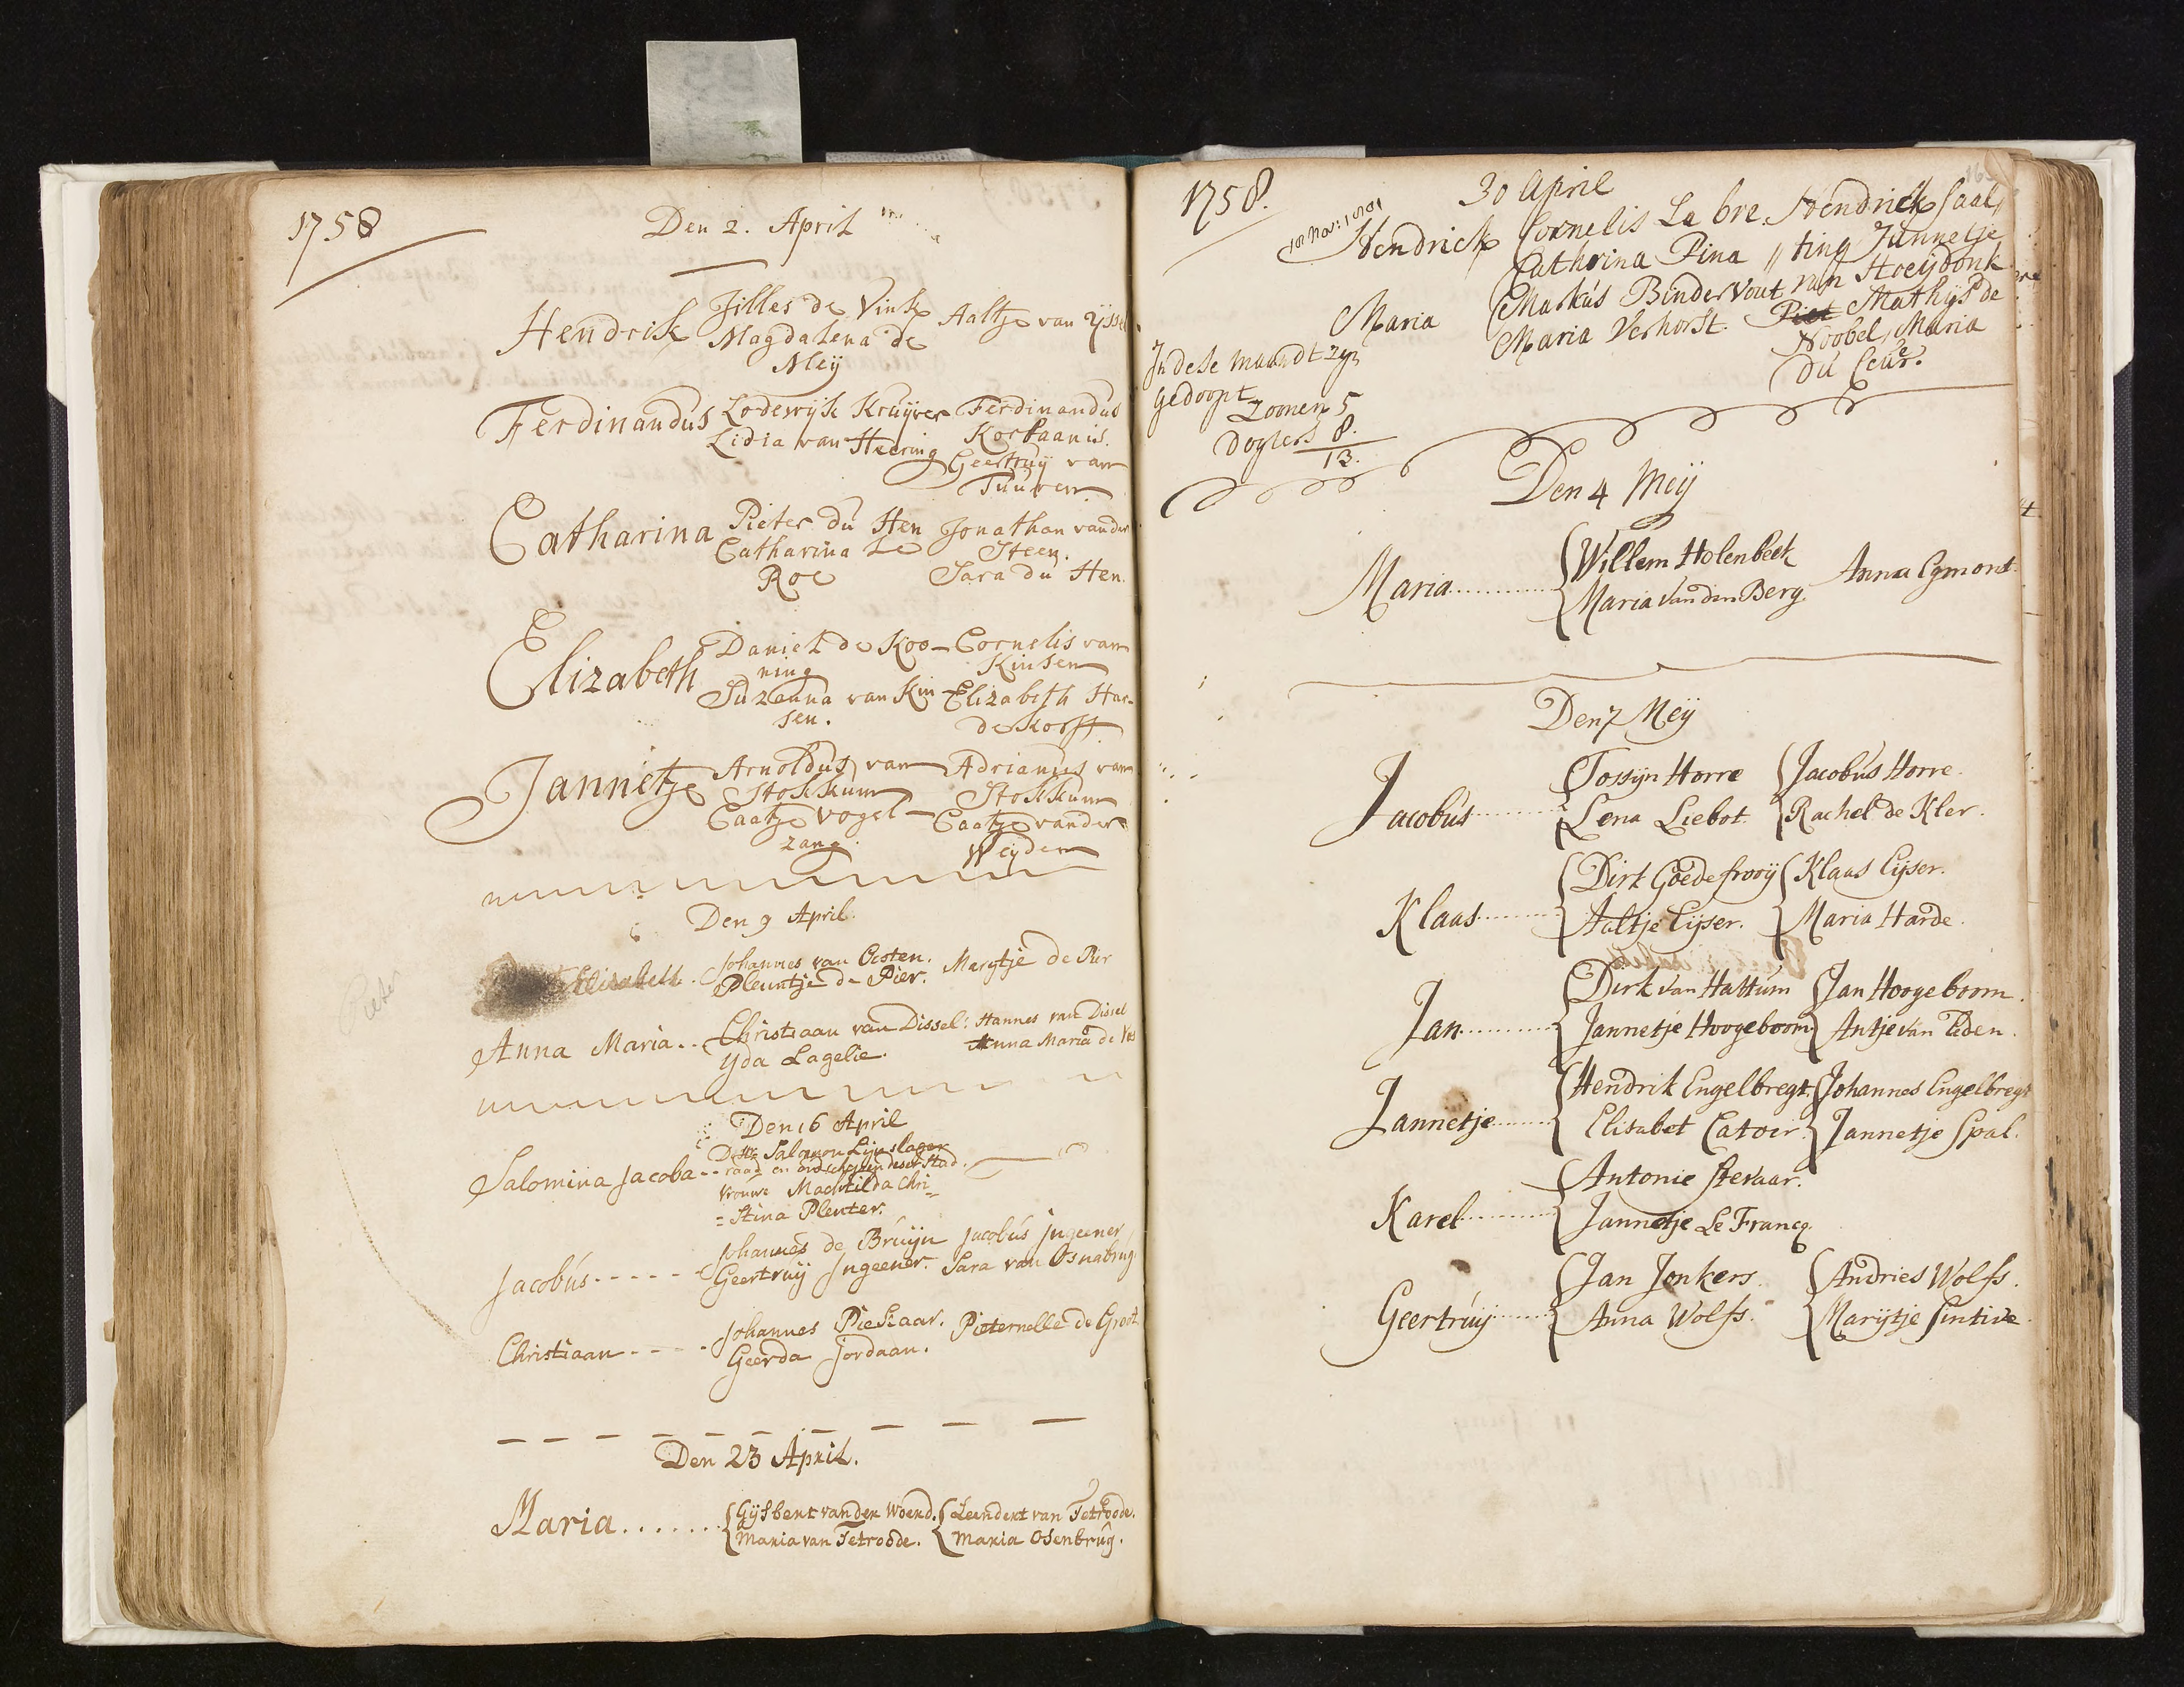 1758
Den 2. April
Hendrik Jilles de Vink Aaltje van Yssel
Magdalena de
Meij
Ferdinandus Lodewijk Kruijver Ferdinandus
Lidia van Heering Korbaanus.
Geertruij van
Tuuren
Catharina Pieter du Hen Jonathan vander
Catharina Le Steen.
Roe Sara du Hen.
Elizabeth Daniel de Koo- Cornelis van
ning Kinsen
Suzanna van Kin- Elizabeth Har-
sen. dekorff
Jannetje Arnoldus van Adrianus van
Stokkum Stokkum
Caatje Vogel- Caatje vander
zang. Weijden
Den 9 April.
Pieter
Elisabeth. Johannes van Oosten. Marytje de Pier
Pleuntje de Pier.
Anna Maria.. Christiaan van Dissel: Hannes van Dissel
Yda Lagelie. Anna Maria de Vos
Den 16 April
Salomina Jacoba -- Salomon Lijnslager
raad en oud schepen deser Stad.
Vrouwe Machtilda Chri=
=stina Plenter.
Jacobús - - - - - Johannes de Brúijn Jacobús Jngeener
Geertruij Jngeener. Sara van Osnabrug.
Christiaan - - - - Johannes Piekaar. Pieternelle de Groot
Geerda Jordaan.
Den 23 April.
Maria....... Gijsbert vander Woerd. Leendert van Tetroode.
Maria van Tetroode. Maria Osenbrúg.
1758.
30 April
Hendrick Cornelis La bre. Hendrick Saal,
Cathrina Pina ,, ting Jannetje
van Hoeijdonk
Maria Markús Bindervout Piet Mathijs de
Maria Verhorst. Noobel, Maria
du Ceúr.
Jn dese maandt zyn
gedoopt
Zoonen 5
Dogters 8.
13.
Den 4 Meij
Maria............ Willem Holenbeek Anna Egmont.
Maria van den Berg.
Den 7 Meij
Jacobús Tossijn Horre Jacobús Horre.
Lena Liebot. Rachel de Kler.
Klaas......... Dirk Goedefrooij Klaas Eijser.
Aaltje Eijser. Maria Harde.
Jan........... Dirk van Hattúm Jan Hoogeboom.
Jannetje Hoogeboom Antje van Eeden.
Jannetje....... Hendrik Engelbregt. Johannes Engelbregt
Elisabet Catoir. Jannetje Spal.
Karel.......... Antonie Stevaar.
Jannetje Le Francq.
Geertrúij...... Jan Jonkers. Andries Wolfs.
Anna Wolfs. Marijtje Sintive.